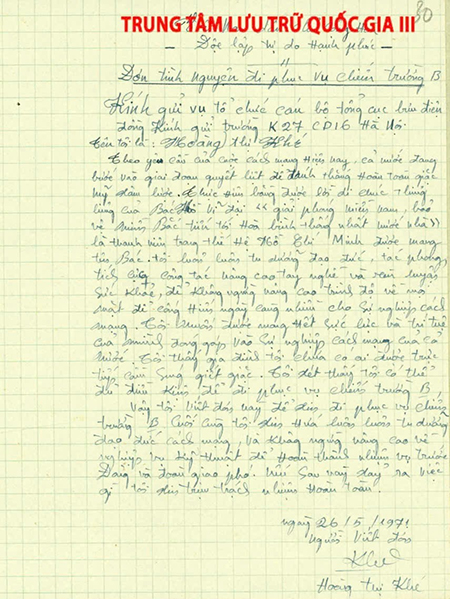 TRUNG TÂM LƯU TRỮ QUỐC GIA III
30
Độc lập tự do Hạnh phúc
Đơn tình nguyện đi phục vụ chiến trường B
Kính gửi vụ tổ chức cán bộ tổng cục bưu điện
đồng Kính gửi trường K27, CD16 Hà Nội
Tên tôi là: Hoàng Thị Khé
Theo yêu cầu của cuộc cách mạng Hiện nay, cả nước đang
bước vào giai đoạn quyết liệt để đánh thắng Hoàn toàn giặc
Mỹ xâm lược. thực Hiện bằng được lời di chúc thiêng
liêng của Bác Hồ vĩ đại "giải phóng miền nam, bảo
vệ miền Bắc tiến tới Hoà bình thống nhất nước nhà"
là thanh niên trong thế Hệ Hồ Chí Minh được mang
tên Bác. tôi luôn luôn tu dưỡng đạo đức, tác phong,
tích cực công tác nâng cao tay nghề và rèn luyện
sức Khoẻ, để Không ngừng nâng cao trình độ về mọi
mặt để cống Hiến ngày càng nhiều cho Sự nghiệp cách
mạng. Tôi muốn được mang Hết sức lực và trí tuệ
của mình đóng góp vào Sự nghiệp cách mạng của cả
nước. Tôi thấy gia đình tôi chưa có ai được trực
tiếp cầm Súng giết giặc. Tôi xét thấy tôi có thể
đủ điều Kiện để đi phục vụ chiến trường B.
Vậy tôi viết đơn này để xin đi phục vụ chiến
trường B. Cuối cùng tôi xin Hứa luôn luôn tu dưỡng
đạo đức cách mạng, và Không ngừng nâng cao về
nghiệp vụ Kỹ thuật để Hoàn thành nhiệm vụ trước
Đảng và đoàn giao phó. nếu Sau này xảy ra việc
gì tôi xin chịu trách nhiệm Hoàn toàn.
ngày 26/5/1971
Người viết đơn
Khé
Hoàng Thị Khé